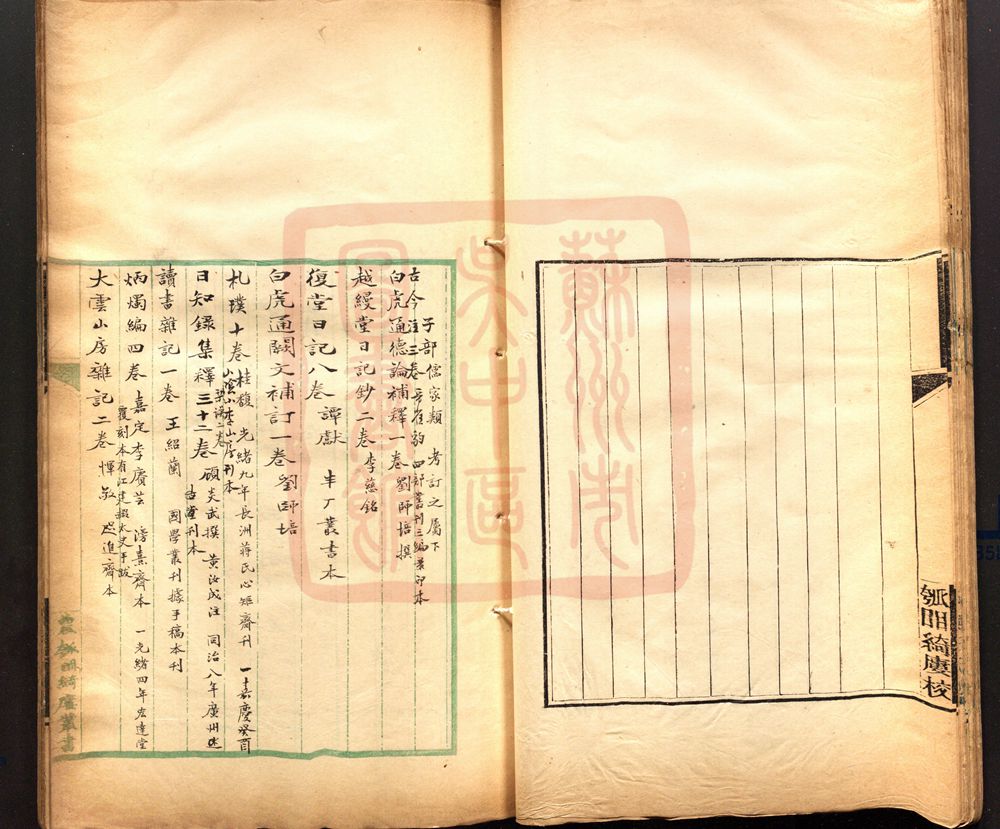 瓠明綺廔校
子部 儒家類 考訂之屬下
古今注三卷 晉崔豹 四部叢刊三編景印本
白虎通德論補釋一卷 劉師培撰
越縵堂日記鈔二卷 李慈銘
復堂日記八卷 譚獻 半厂叢書本
白虎通闕文補訂一卷 劉師培
札樸十卷 桂馥 光緒九年長洲蔣氏心矩齋刊 一嘉慶癸酉
山陰小李山房刊本
日知錄集釋三十二卷 顧炎武撰 黃汝成注 同治八年廣州述
古堂刊本
讀書雜記一卷 王紹蘭 國學叢刊據手稿本刊
炳燭編四卷 嘉定李賡芸 滂熹齋本 一光緒四年宏達堂
覆刻本有江建霞太史手跋
大雲山房雜記二卷 惲敬 咫進齋本
綺廔叢書
蘇州市
吳中區
圖書館